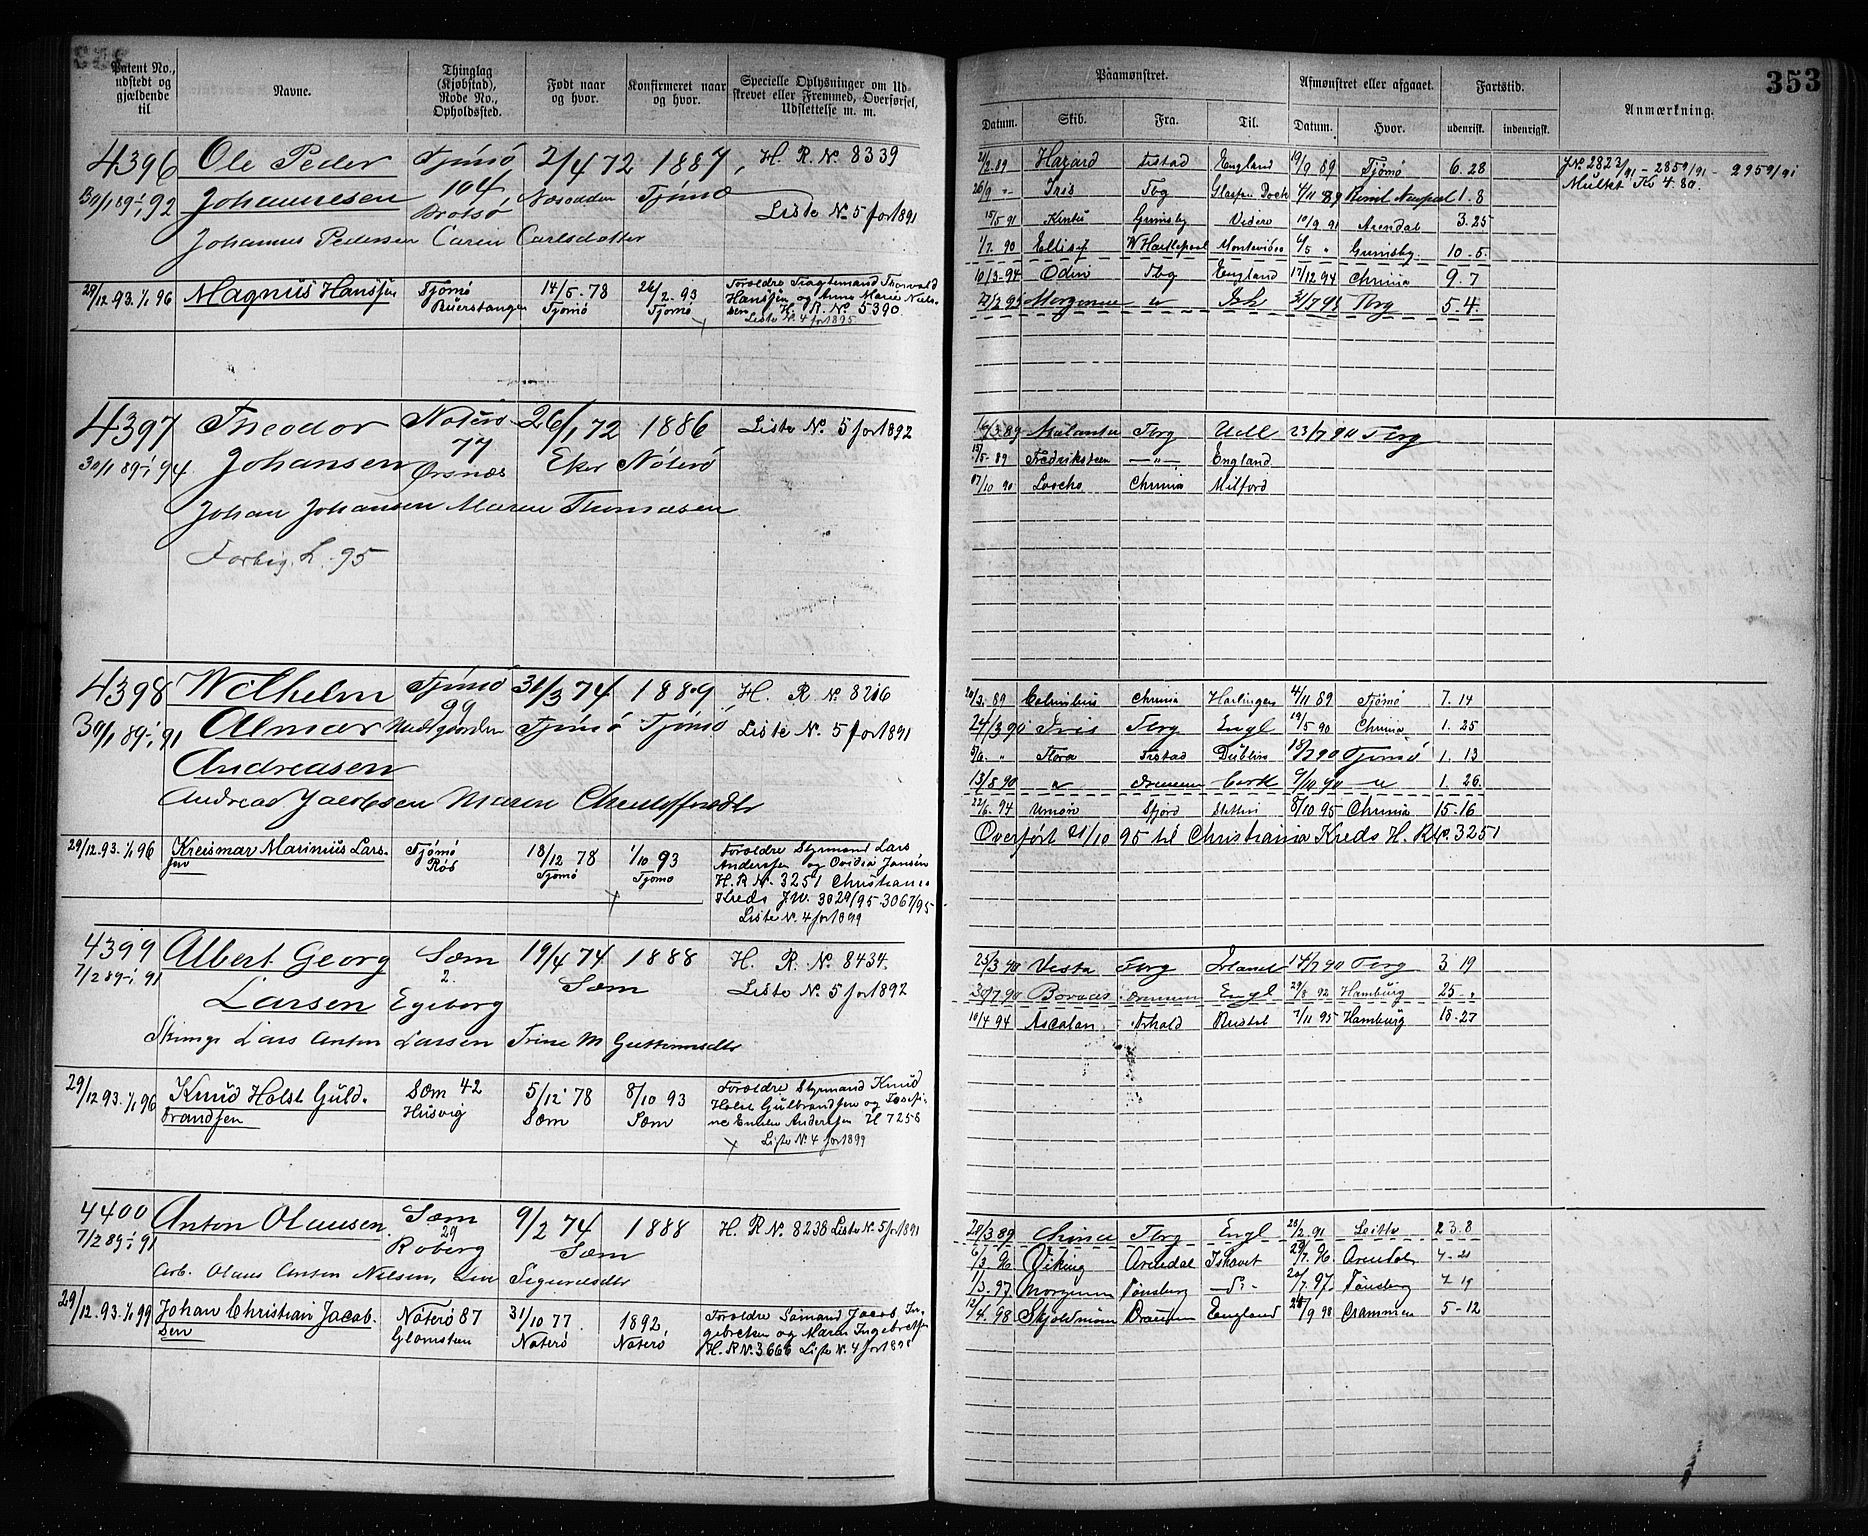 Patent No., udstedt og gjældende til
Navne.
Thinglag (Kjøbstad), Rode No., Opholdssted.
Født naar og hvor.
Konfirmeret naar og hvor.
Specielle Oplysninger om Udskrevet eller Fremmed, Overførsel, Udslettelse m. m.
4396 Ole Peder Tjømø 2/4 72 1887, H. R. No 8339
30/1 89-1/1 92 Johannesen 104, Næsodden Tjømø
Brøtsø Liste No 5 for 1891
Johannes Pedersen Caren Carlsdatter
29/12 93. 1/1 96 Magnus Hanssen Tjømø 14/5 - 78 26/2 - 93 Forældre Fragtemand Thorvald
Tjømø Tjømø Hanssen og Anne Marie Niel-
sen H. R. No 5390
Liste No. 4 for 1895
4397 Theodor Nøterø 26/1 72 1886 Liste No. 5 for 1892
77
30/1 89-1/1 94. Johansen Ørsnæs Eker Nøterø
Johan Johansen Maren Thomasen
Forbig. L. 95
4398 Wilhelm Tjømø 31/3 74 1889 H. R. No. 8216
99
30/1 89-1/1 91 Almar Medtgaarden Tjømø Tjømø Liste No. 5 for 1891
Andreasen
Andreas Jacobsen Maren
29/12 93. 1/1 96 Kreismar Marinius Lars- Tjømø 18/12 78 1/10 93 Forældre Styrmand Lars
sen Røs Tjømø Tjømø Anderssen og Ovidia Jansen
H. R No. 3251 Christiania
Kreds J No. 3029/95-3067/95-
Liste No. 4 for 1899
4399 Albert Georg Sæm 19/4 74 1888 H. R. No. 8434.
7/2 89-1/1 91 2. Sæm
Larsen Egeberg Liste No. 5 for 1892
Lars Anton Larsen Trine M
29/12 93. 1/1 96 Knud Holst Guld- Sæm 42 5/12 78 8/10 93 Forældre Styrmand Knud
brandsen Husvig Sæm Sæm Holst Gulbrandsen og Josefi-
ne Emilie Anderssen U 7256
Liste No. 4 for 1899
4400 Anton Olausen Sæm 9/2 74 1888 H. R No. 8238 Liste No. 5 for 1891
29
7/2 89-1/1 91 Roberg Sæm
Arb. Olaus Anton Nielsen,
29/12 93. 1/1 99 Johan Christian Jacob- Nøterø 87 31/10 77. 1892, Forældre Sømand Jacob In-
sen Glomsten Nøterø Nøterø gebretsen og Maren Ingebretsen
H. R No. 3666 Liste No. 4 for
353
Paamønstret.
Afmønstret eller afgaaet.
Fartstid.
Anmærkning.
Datum. Skib. Fra. Til. Datum. Hvor. udenrigsk. indenrigsk.
2/2 89 Hazard Fistad England 19/9 89 Tjømø 6. 28 J No. 2823/91 - 2859/91 - 2959/91
26/9 " Iris Tbg 4/11 89 1. 8 Mulkt Kr 4. 80.
15/5 91 Grimsby 10/9 91 Arendal 3. 25
1/7. 90 W Hartlepool Montevideo 6/5 " Grimsby. 10. 5.
10/3 - 94 Odin Tbg England 17/12 94 Chrnia 9. 7
Tbrg 5 - 4.
16/3. 89 Tbrg 23/7 90 Tbrg
15/5 - 89 Fredriksteen — " — England
17/10 90 Chrnia Milford
20/3. 89 Columbus Chrnia Harlingen 4/11 89 Tjømø 7. 14
24/3 90 Iris Tbrg Engl 19/5 90 Chrnia 1. 25
5/6. " Flora Fistad Dublin 18/7 90 Tjømø 1. 13
13/8 90 " Cork 9/10 90 " 1. 26.
22/6. 94 Union Stettin 8/10 95 Chrnia 15. 16
Overført 21/10 95 til Christiania Kreds H. R No. 3251
25/3 90 Vesta Tbrg Irland 14/7 90 Tbrg 3 19
30/7 90 Boreas Engl 29/8 92 Hamburg 25 - "
10/4 94 Ascalon 7/11 95 Hamburg 18 - 27
28/3 89 China Tbrg Engl 28/2 91 Leith 23. 8
6/3 96 Viking Arendal Ishavet 29/7. 96 Arendal 4 - 21
1/3. 97 Tønsberg 20/7. 97. Tønsberg 4 19
12/4. 98 England 28/9 98 Drammen 5 - 12